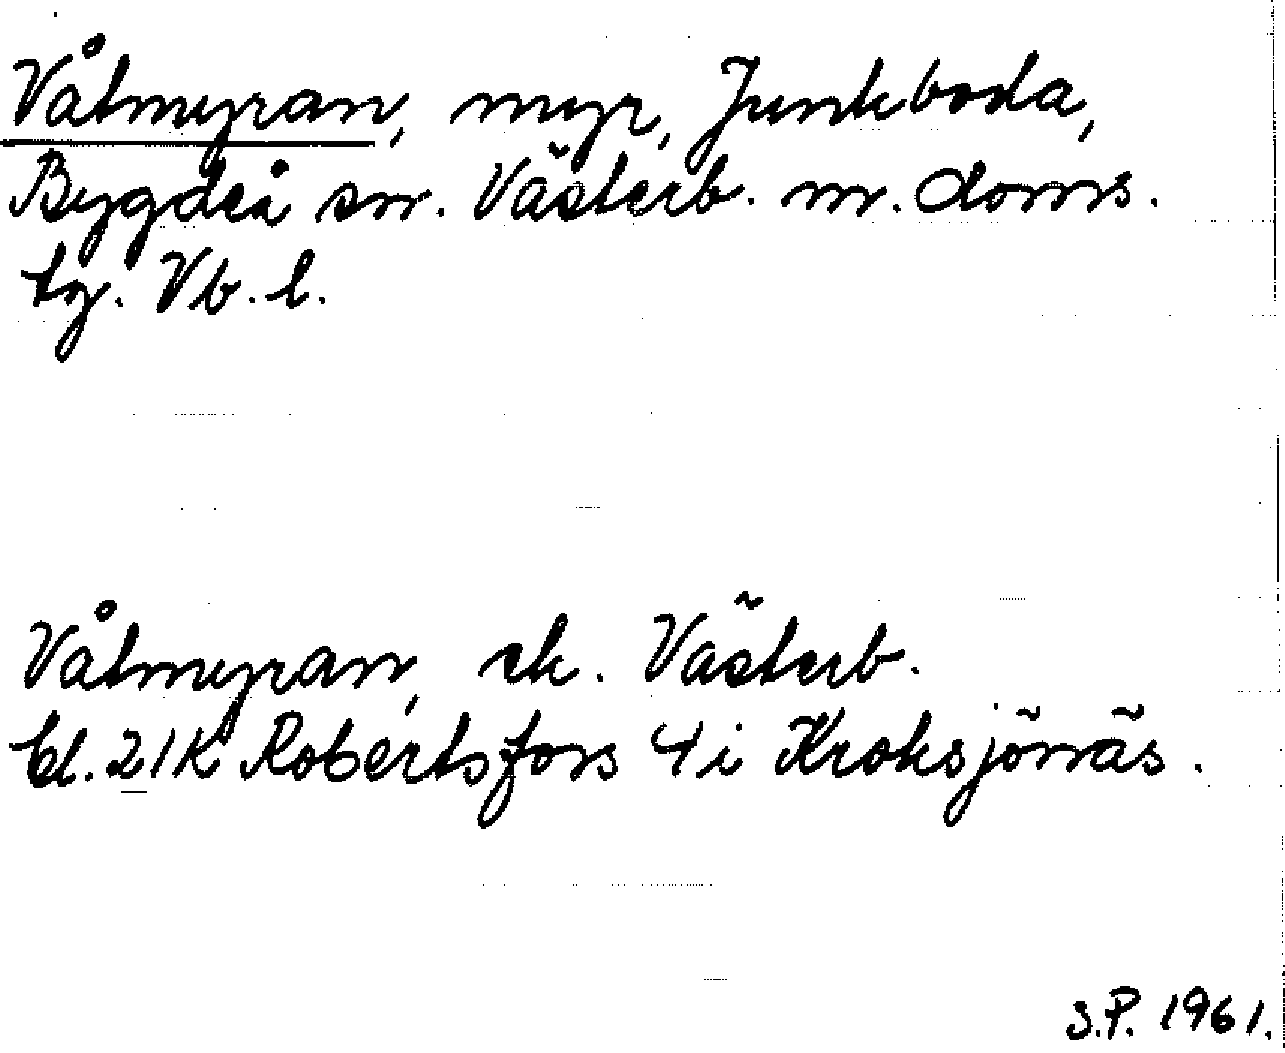 Våtmyran, myr, Junkboda,
Bygdeå sn. Västerb. n. doms.
tg. Vb. l.
Våtmyran, ek. Västerb.
bl. 21K Robertsfors 4 i Kroksjönäs.
S.P. 1961.